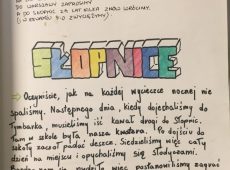 DO WARSZAWY ZAPROSIMY
A DO SŁOPNIC ZA LAT KILKA ZNÓW WRÓCIMY.
SŁOPNICE
Oczywiście, jak na każdej wycieczce nocnej nie
spaliśmy. Następnego dnia, kiedy dojechaliśmy do
Tymbarka musieliśmy iść kawał drogi do Słopnic.
Tam w szkole była nasza kwatera. Po dojściu do
szkoły zaczął padać deszcz. Siedzieliśmy więc cały
dzień na miejscu i opychaliśmy się słodyczami.
się więc postanowiliśmy zagrać